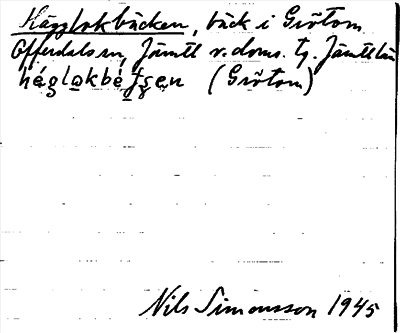 Hägglokbäcken, bäck i Grötom
Offerdals sn, Jämtl v. doms. tg. Jämtl. län
(Grötom)
Nils Simonsson 1945